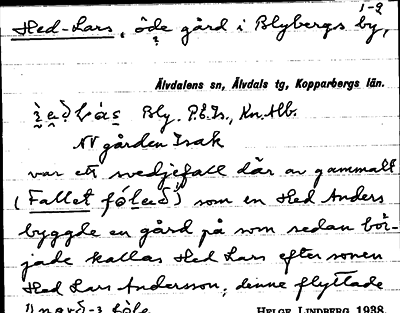 1-2
Hed-Lars, öde gård i Blybergs by,
Älvdalens sn, Älvdals tg, Kopparbergs län.
Bly. P.E.Is., Kn.Alb.
NV gården Isak
var ett svedjefall där av gammalt
(Fallet som en Hed Anders
byggde en gård på som sedan bör-
jade kallas Hed Lars efter sonen
Hed Lars Andersson; denne flyttade
HELGE LINDBERG 1938.